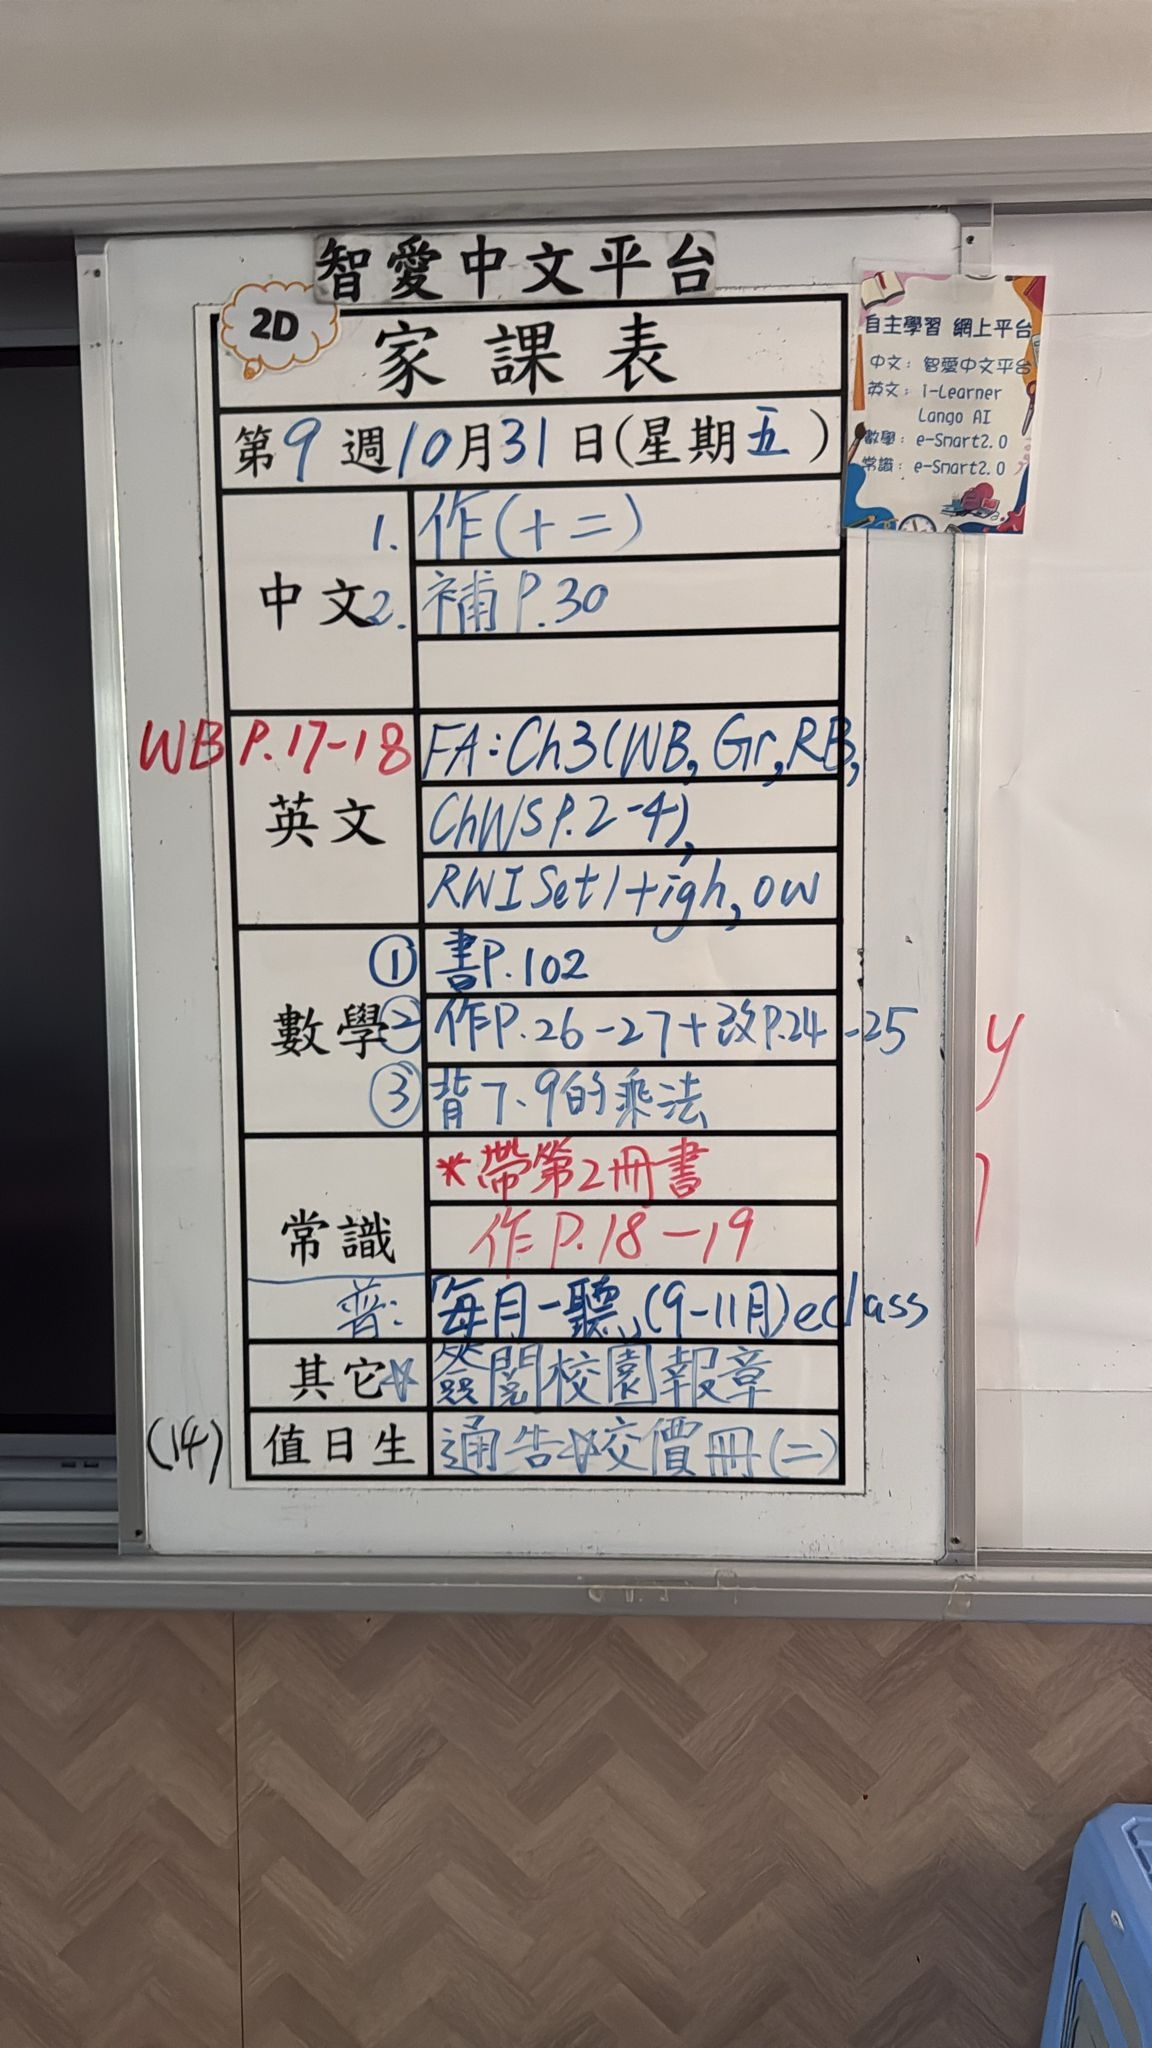 智愛中文平台
2D
家課表
第9週10月31日(星期五)
中文
1. 作(十二)
2. 補P.30
英文
WB P.17-18
FA: Ch3(WB, Gr, RB,
ChWS P.2-4),
RWI Set 1 + igh, ow
數學
① 書P.102
② 作P.26-27+改P.24-25
③ 背7、9的乘法
常識
*帶第2冊書
作P.18-19
普: 每月一聽,(9-11月)eclass
其它☆簽閱校園報章
(14) 值日生 通告☆交價冊(二)
自主學習 網上平台
中文: 智愛中文平台
英文: i-Learner
Lango AI
數學: e-Smart2.0
常識: e-Smart2.0
y